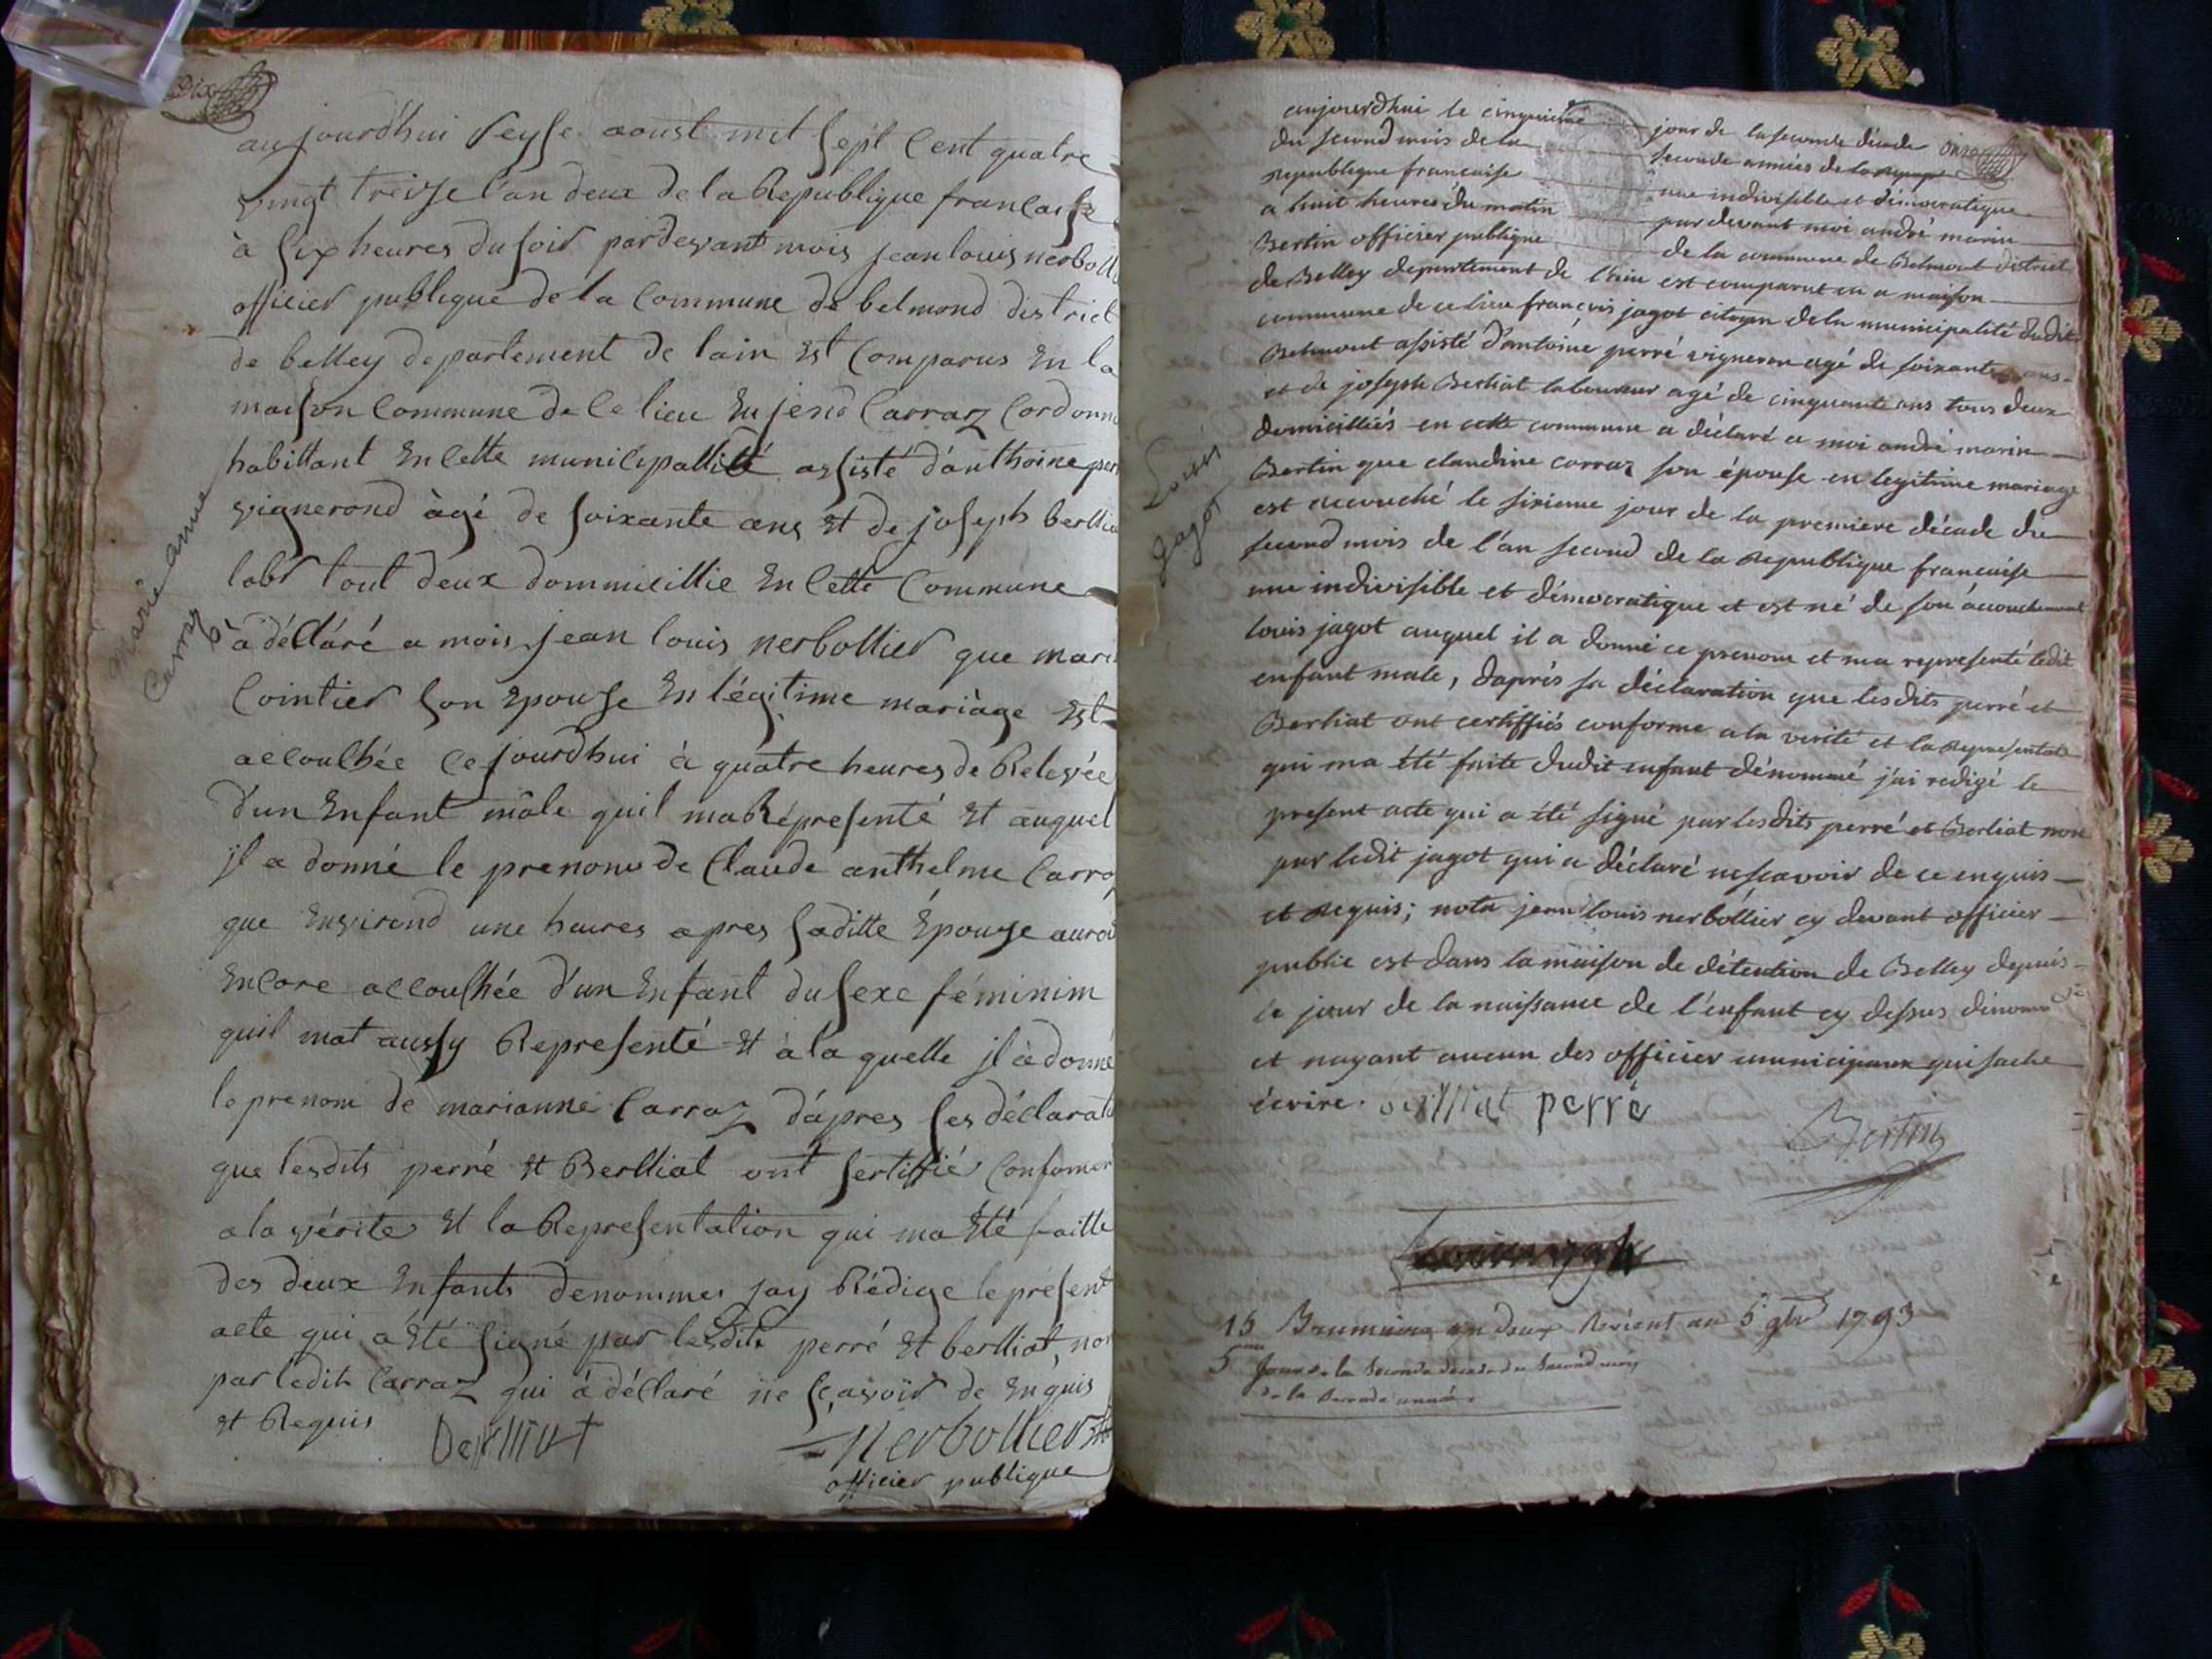 Dix
aujourd'huy seyse aoust mil sept Cent quatre
vingt treise l'an deux de la Republique francaise
à six heures du soir pardevant mois jean louis nerboll
officier publique de la Commune de belmond district
de belley departement de lain Est Comparus En la
maison Commune de Ce lieu Carraz Cordonn
habittant En Cette municipallité assisté d'anthoine per
vignerond àgé de soixante ans Et de joseph berllia
labr tout deux dommicillie En Cette Commune
à déClaré a mois jean louis nerbollier que mari
Cointier son Epouse En légitime mariàge Est
accouchée Ce jourd'hui à quatre heures de Relevée
d'un Enfant mâle quil ma Répresenté Et auquel
jl a donné le prenom de Claude anthelme Carra
que Environd une heures apres saditte Épouse auroi
Encore accouchée d'un Enfant du sexe féminim
quil mat aussy Representé Et à la quelle jl à donné
le prenom de marianne Carraz d'apres ses déClarati
que lesdits perré Et Berlliat ont sertiffié Confomer
a la vérite Et la Representation qui ma Eté faitte
des deux Enfants denommes jay Rédige le présent
acte qui a Eté signé par lesdits perré Et berlliat, non
par ledit Carraz qui à déClaré ne sçavoir de Enquis
Et Requis
Berlliat
Nerbollier
officier publique
marie anne
Carraz
onze
aujourd'hui le cinquieme jour de la seconde décade
du second mois de la seconde années de la
republique francaise une indivisible et démocratique
a huit heures du matin par devant moi andré marin
Bertin officier publique de la commune de Belmont district
de Belley departement de l'ain est comparut en a maison
commune de ce lieu françois jagot citoyen de la municipalité dudit
Belmont assisté d'antoine perré vigneron agé de soixante ans
et de joseph Berliat laboureur agé de cinquante ans tous deux
domicilliés en cette commune a déclaré a moi andré marin
Bertin que claudine carraz son épouse en legitime mariage
est accouché le sixieme jour de la premiere décade du
second mois de l'an second de la Republique francaise
une indivisible et démocratique et est né de son accouchement
louis jagot auquel il a donné ce prenom et ma representé ledit
enfant male, d'aprés sa déclaration que lesdits perré et
Berliat ont certiffiés conforme a la verité et la Representat
qui ma été faite dudit enfant dénommé j'ai redigé le
present acte qui a été signé par lesdits perré et Berliat non
par ledit jagot qui a déclaré ne scavoir de ce enquis
et Requis; nota jean louis nerbollier cy devant officier
public est dans la maison de détention de Belley depuis
le jour de la naissance de l'enfant cy dessus dénommé
et nayant aucun des officier municipaux qui sache
écrire. berlliat perré
Bertin
Louis
Jagot
15 Brumaire an deux Revient au 5 9bre 1793
5me Jour de la Seconde decade du Second mois
de la Seconde année.